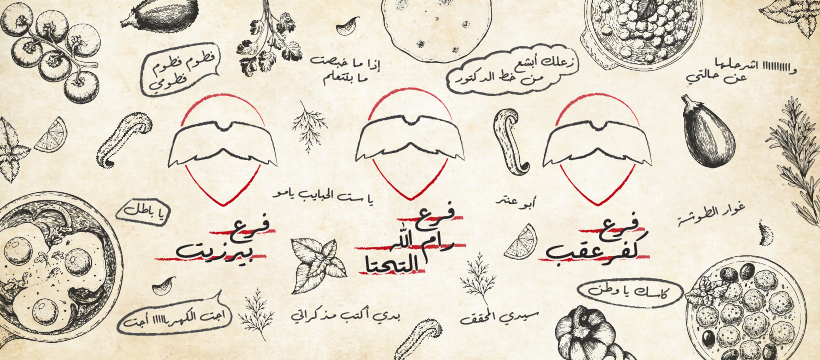 فطوم فطوم
فطومي
إذا ما خبصت
ما بلتعلم
زعلك أبشع
من خط الدكتور
واااااااا اشرحلها
عن حالتي
يا باطل
يا ست الحبايب يامو
أبو عنتر
غوار الطوشة
فرع
بيرزيت
فرع
رام الله
التحتا
فرع
كفر عقب
كاسك يا وطن
اجت الكهربااااا أجت
بدي أكتب مذكراتي
سيدي المحقق